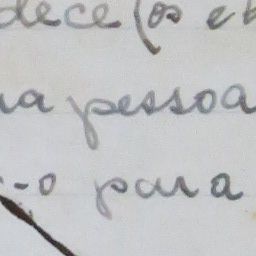 dece (os
na pessoa
-o para